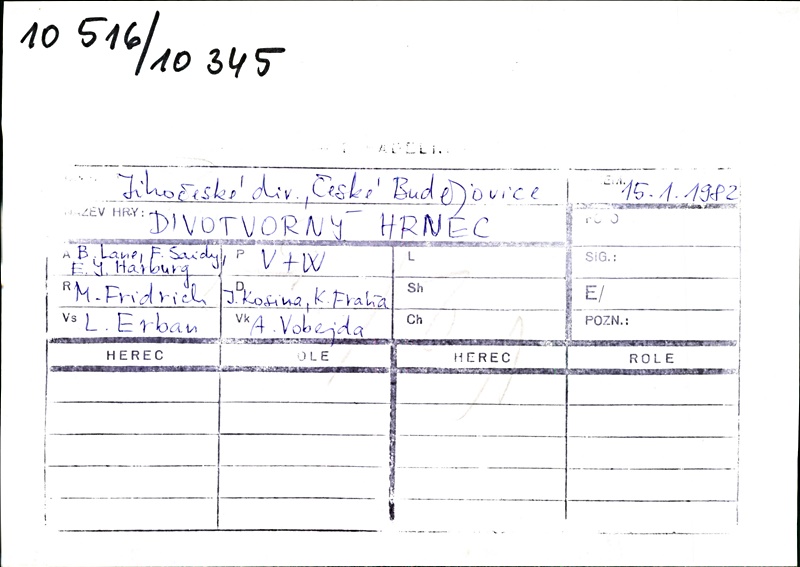 10 516/10 345
Jihočeské div., České Budějovice 15.1.1982
NÁZEV HRY: DIVOTVORNÝ HRNEC
A B. Lane, F. Saidy, E. Y. Harburg P V+W L SIG.:
R M. Fridrich D J. Kosina, K. Fraňa Sh E/
Vs L. Erban Vk A. Vobejda Ch POZN.:
HEREC OLE HEREC ROLE